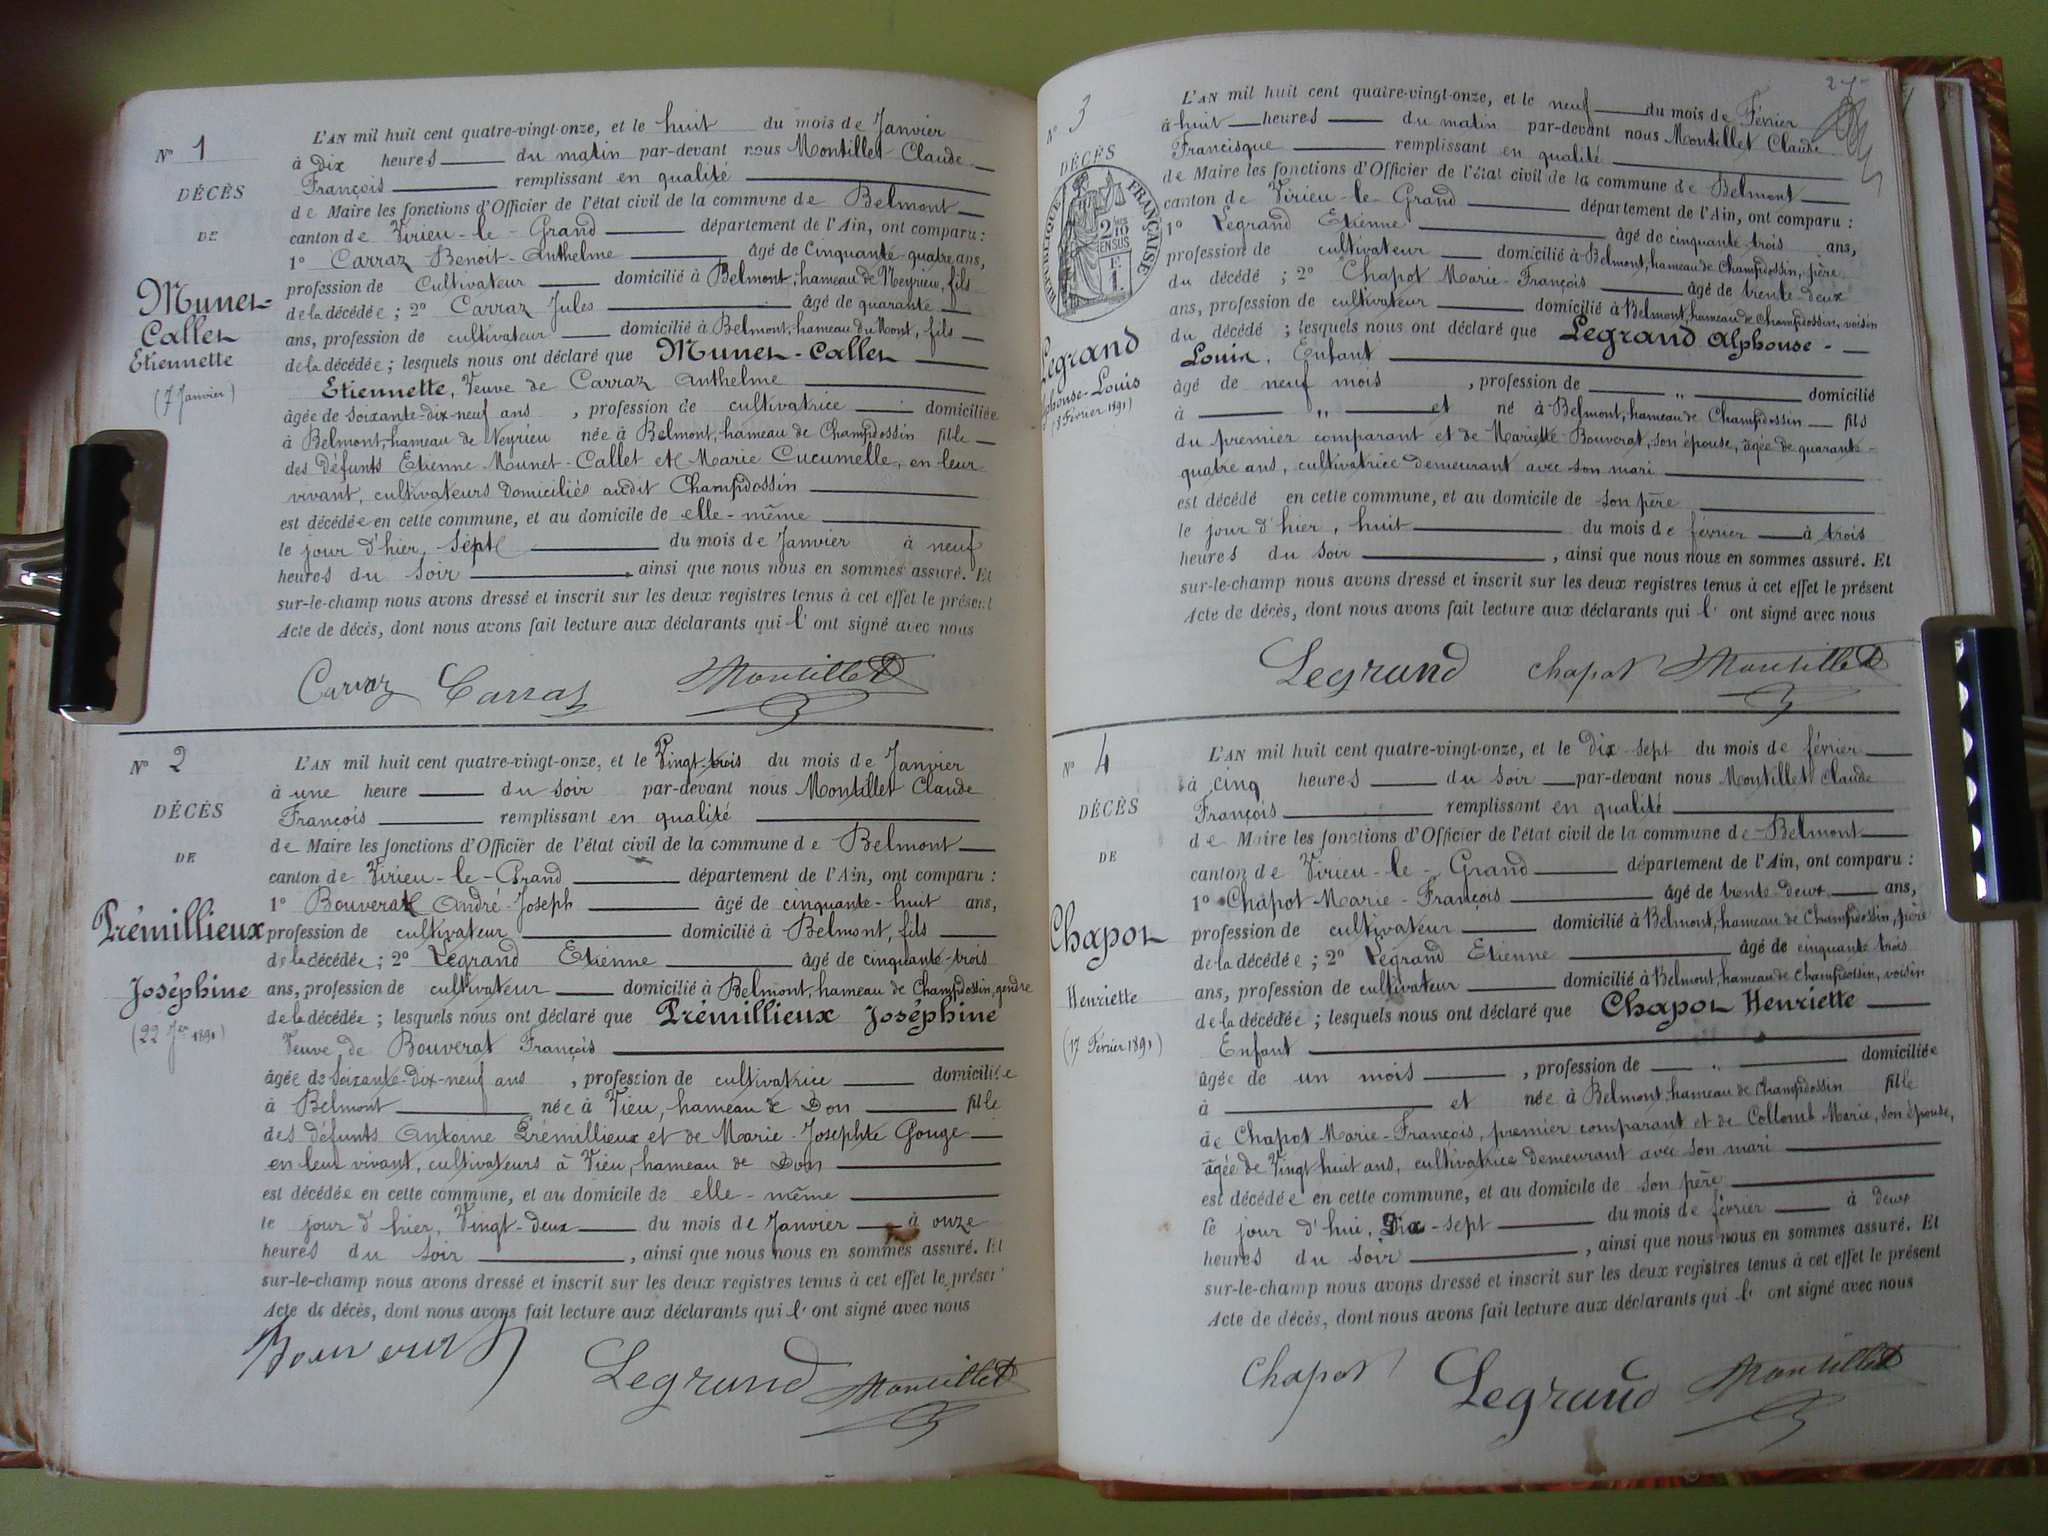 N° 1
DÉCÈS
DE
Munet-
Callet
Etiennette
(7 Janvier)
L'AN mil huit cent quatre-vingt-onze, et le huit du mois de Janvier
à dix heures du matin par-devant nous Montillet Claude
François remplissant en qualité
de Maire les fonctions d'Officier de l'état civil de la commune de Belmont
canton de Virieu-le-Grand département de l'Ain, ont comparu :
1° Carraz Benoit-Anthelme âgé de Cinquante-quatre ans,
profession de Cultivateur domicilié à Belmont, hameau de Neyrieu, fils
de la décédée ; 2° Carraz Jules âgé de quarante
ans, profession de cultivateur domicilié à Belmont, hameau du Mont, fils
de la décédée ; lesquels nous ont déclaré que Munet-Callet
Etiennette, Veuve de Carraz Anthelme
âgée de soixante-dix-neuf ans , profession de cultivatrice domiciliée
à Belmont, hameau de Neyrieu née à Belmont, hameau de Champdossin fille
des défunts Etienne Munet-Callet et Marie Cucumelle, en leur
vivant, cultivateurs domiciliés audit Champdossin
est décédée en cette commune, et au domicile de elle-même
le jour d'hier, sept du mois de Janvier à neuf
heures du soir , ainsi que nous nous en sommes assuré. Et
sur-le-champ nous avons dressé et inscrit sur les deux registres tenus à cet effet le présent
Acte de décès, dont nous avons fait lecture aux déclarants qui l' ont signé avec nous
Carraz Carraz Montillet
N° 2
DÉCÈS
DE
Prémillieux
Joséphine
(22 Jer 1891)
L'AN mil huit cent quatre-vingt-onze, et le Vingt-trois du mois de Janvier
à une heure du soir par-devant nous Montillet Claude
François remplissant en qualité
de Maire les fonctions d'Officier de l'état civil de la commune de Belmont
canton de Virieu-le-Grand département de l'Ain, ont comparu :
1° Bouverat André-Joseph âgé de cinquante-huit ans,
profession de cultivateur domicilié à Belmont, fils
de la décédée ; 2° Legrand Etienne âgé de cinquante-trois
ans, profession de cultivateur domicilié à Belmont, hameau de Champdossin, gendre
de la décédée ; lesquels nous ont déclaré que Prémillieux Joséphine
Veuve de Bouverat François
âgée de Soixante-dix-neuf ans , profession de cultivatrice domiciliée
à Belmont née à Vieu, hameau de Don fille
des défunts Antoine Prémillieux et de Marie-Josephte Gouge
en leur vivant, cultivateurs à Vieu, hameau de Don
est décédée en cette commune, et au domicile de elle-même
le jour d'hier, Vingt-deux du mois de Janvier à onze
heures du soir , ainsi que nous nous en sommes assuré. Et
sur-le-champ nous avons dressé et inscrit sur les deux registres tenus à cet effet le présent
Acte de décès, dont nous avons fait lecture aux déclarants qui l' ont signé avec nous
Legrand Montillet
27
N° 3
DÉCÈS
RÉPUBLIQUE FRANÇAISE
2 10
EN SUS
Legrand
Alphonse-Louis
(8 Février 1891)
L'AN mil huit cent quatre-vingt-onze, et le neuf du mois de Février
à huit heures du matin par-devant nous Montillet Claude
Francisque remplissant en qualité
de Maire les fonctions d'Officier de l'état civil de la commune de Belmont
canton de Virieu-le-Grand département de l'Ain, ont comparu :
1° Legrand Etienne âgé de cinquante trois ans,
profession de cultivateur domicilié à Belmont, hameau de Champdossin, père
du décédé ; 2° Chapot Marie-François âgé de trente-deux
ans, profession de cultivateur domicilié à Belmont, hameau de Champdossin, voisin
du décédé ; lesquels nous ont déclaré que Legrand Alphonse-
Louis, Enfant
âgé de neuf mois , profession de „ domicilié
à „ et né à Belmont, hameau de Champdossin fils
du premier comparant et de Mariette Bouverat, son épouse, âgée de quarante-
quatre ans, cultivatrice demeurant avec son mari
est décédé en cette commune, et au domicile de son père
le jour d'hier, huit du mois de février à trois
heures du soir , ainsi que nous nous en sommes assuré. Et
sur-le-champ nous avons dressé et inscrit sur les deux registres tenus à cet effet le présent
Acte de décès, dont nous avons fait lecture aux déclarants qui l' ont signé avec nous
Legrand Chapot Montillet
N° 4
DÉCÈS
DE
Chapot
Henriette
(17 Février 1891)
L'AN mil huit cent quatre-vingt-onze, et le dix-sept du mois de février
à cinq heures du soir par-devant nous Montillet Claude
François remplissant en qualité
de Maire les fonctions d'Officier de l'état civil de la commune de Belmont
canton de Virieu-le-Grand département de l'Ain, ont comparu :
1° Chapot Marie-François âgé de trente-deux ans,
profession de cultivateur domicilié à Belmont, hameau de Champdossin, père
de la décédée ; 2° Legrand Etienne âgé de cinquante trois
ans, profession de cultivateur domicilié à Belmont, hameau de Champdossin, voisin
de la décédée ; lesquels nous ont déclaré que Chapot Henriette
Enfant
âgée de un mois , profession de „ domiciliée
à et née à Belmont, hameau de Champdossin fille
de Chapot Marie-François, premier comparant et de Collomb Marie, son épouse,
âgée de Vingt huit ans, cultivatrice demeurant avec son mari
est décédée en cette commune, et au domicile de son père
le jour d'hui, Dix-sept du mois de février à deux
heures du soir , ainsi que nous nous en sommes assuré. Et
sur-le-champ nous avons dressé et inscrit sur les deux registres tenus à cet effet le présent
Acte de décès, dont nous avons fait lecture aux déclarants qui l' ont signé avec nous
Chapot Legrand Montillet